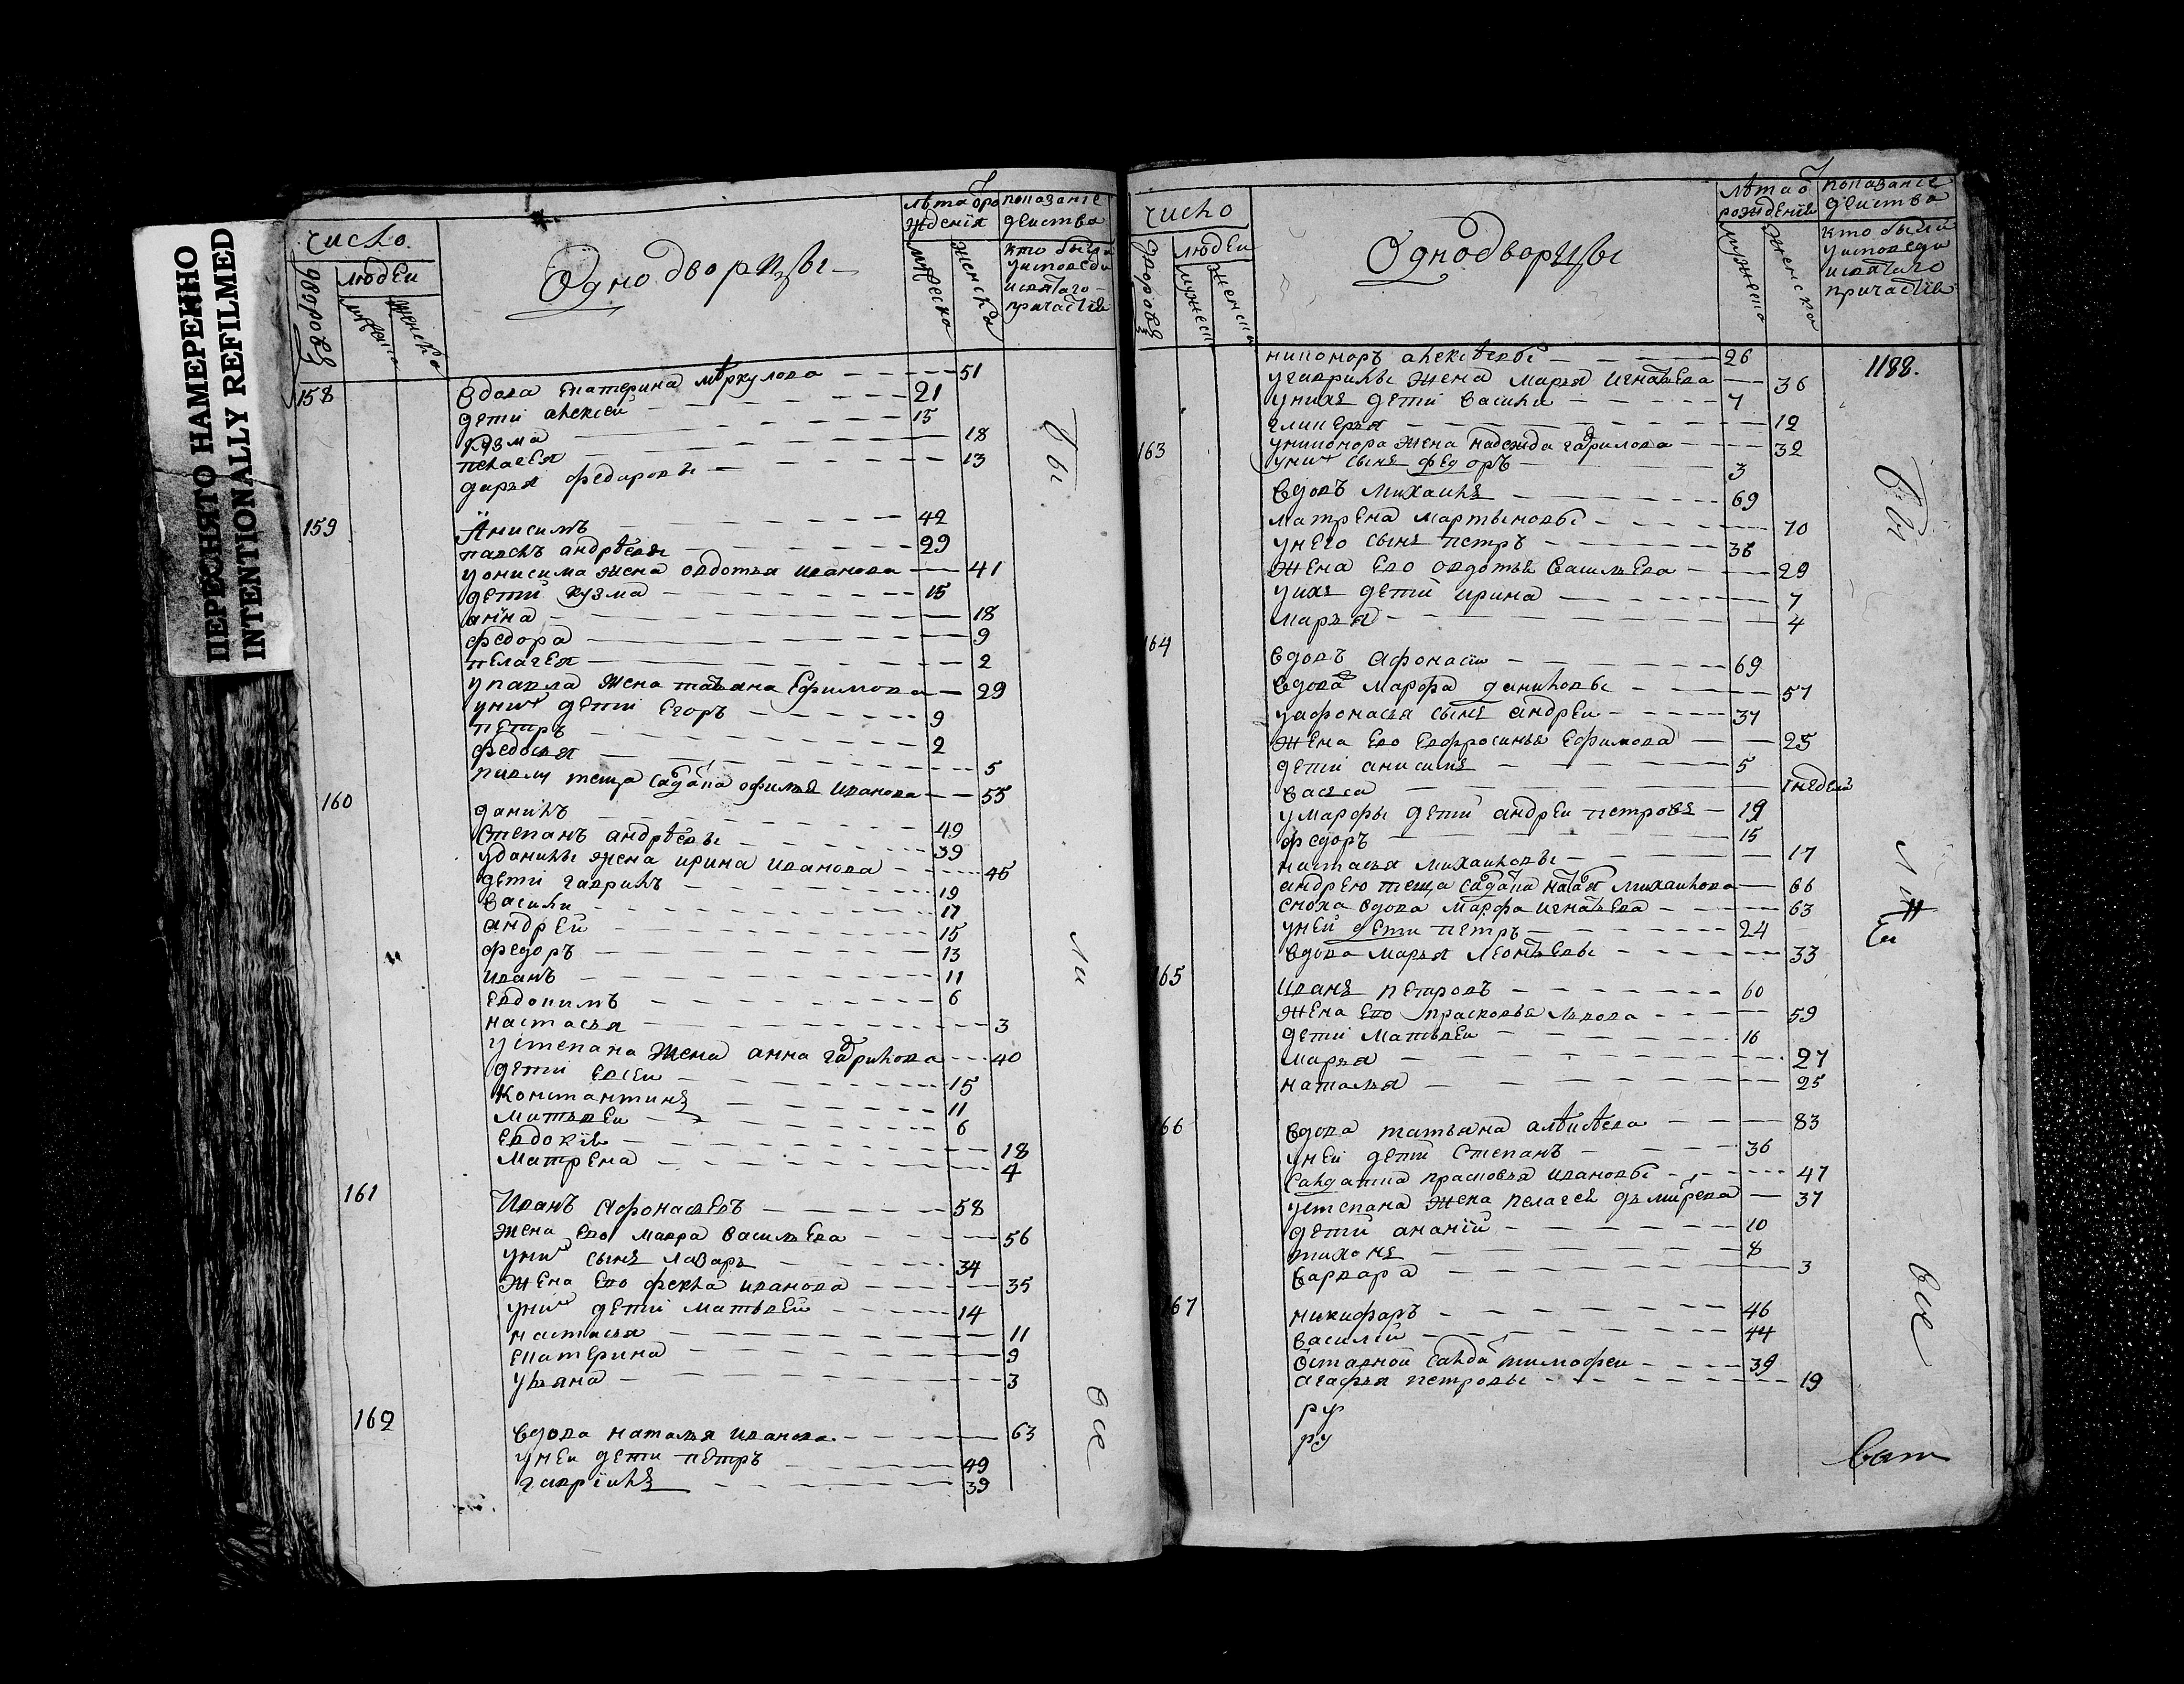 ПЕРЕСНЯТО НАМЕРЕННО
INTENTIONALLY REFILMED
число
дворовъ
людеи
женска
Однодворцы
лѣта \ѿ/ро
жденїя
женска
показанїе
деиства
кто были
уисповеди
исвтаго
причастїя
158
вдова екатерина мѣркулова 51
дети алексеи 21
кузма 15
пелагея 18
дарья федаровы 13
159
Анисимъ 42
павелъ андрѣевы 29
уонисима жена овдотья иванова 41
дети кузма 15
анна 18
федора 9
пелагея 2
упавла жена татьяна Ефимова 29
уних дети егоръ 9
петръ 2
федосья 5
павлу теща офимья иванова 55
160
данилъ 49
степанъ андрѣевы 39
уданилы жена ирина иванова 45
дети гаврилъ 19
васили 17
андреи 15
федоръ 13
иванъ 11
евдокимъ 6
настасья 3
устепана жена анна гаврилова 40
дети евсеи 15
константинъ 11
матвеи 6
евдокїя 18
матрена 4
161
Иванъ афонасьевъ 58
жена ево мавра васильева 56
уних сынъ лазарь 34
жена ево фекла иванова 35
уних дети матвеи 14
настасья 11
екатерина 9
ульяна 3
162
вдова наталья иванова 63
унеи дети петръ 49
гаврїилъ 39
бы
ли
все
число
дворовъ
людеи
Однодворцы
лѣта ѿ
рожденїя
мужеска
женска
показанїе
деиства
кто были
уисповеди
исвтаго
причастїя
1188.
никоноръ алексѣевы 26
угаврилы жена марья игнатьева 36
унихъ дети васили 7
гликерья 12
униконора жена надежда гаврилова 32
уних сынъ федоръ 3
163
вдовъ михаилъ 69
матрена мартыновы 70
унего сынъ петръ 38
жена ево овдотья васильева 29
уихъ дети ирина 7
марья 4
164
вдовъ афонасїи 69
вдова марфа даниловы 57
уафонасья сынъ андреи 37
жена ево евфросинья ефимова 25
дети анисимъ 5
васса
умарфы дети андреи петровъ 19
федоръ 15
настасья михаиловы 17
андрею теща михаилова 66
сноха вдова марфа игнатьева 63
унеи дети петръ 24
вдова марья леонтьевы 33
165
иванъ петровъ 60
жена ево прасковья львова 59
дети матвеи 16
марья 27
наталья 25
66
вдова татьяна 83
унеи дети степанъ 36
салдатка прасковья ивановы 47
устепана жена пелагея 37
дети ананїи 10
тихонъ 8
варвара 3
67
никифаръ 46
василїи 44
ѿставной салда тимофеи 39
агафья петровы 19
ру
ру
бы
ли
все
ват